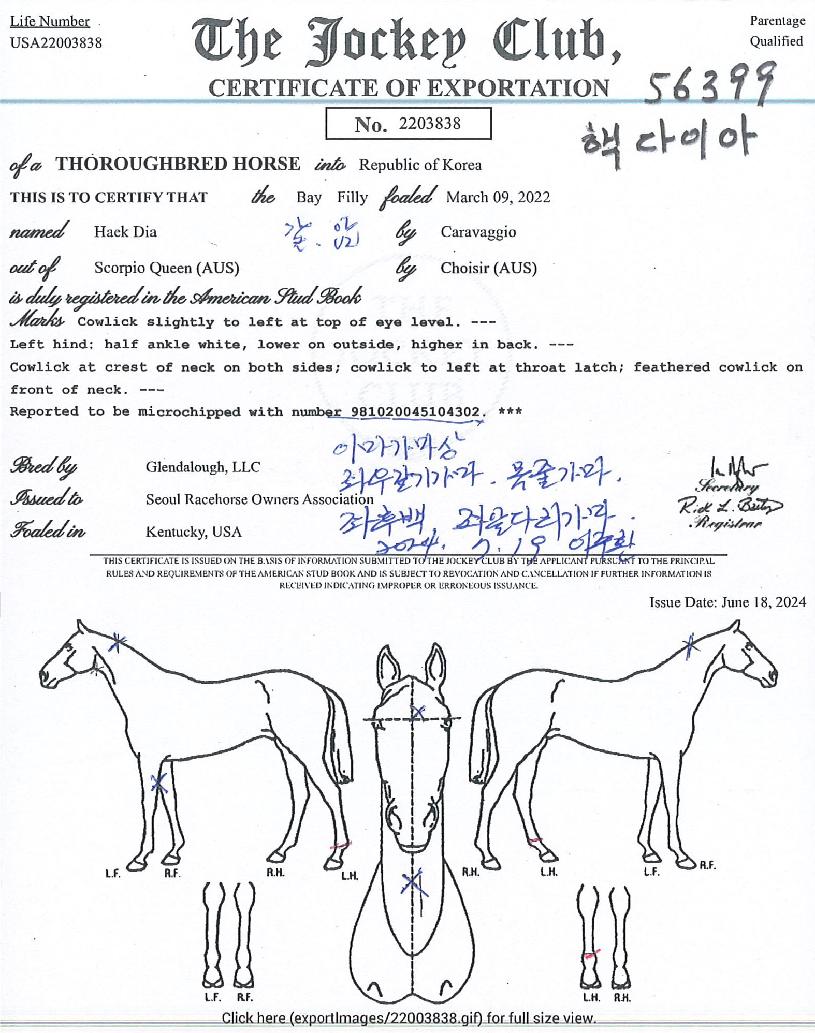 Life Number
USA22003838
The Jockey Club,
Parentage
Qualified
CERTIFICATE OF EXPORTATION
56399
No. 2203838
핵 다이아
of a THOROUGHBRED HORSE into Republic of Korea
THIS IS TO CERTIFY THAT the Bay Filly foaled March 09, 2022
named Haek Dia 갈. 암 by Caravaggio
out of Scorpio Queen (AUS) by Choisir (AUS)
is duly registered in the American Stud Book
THE JOCKEY CLUB
Marks Cowlick slightly to left at top of eye level. ---
Left hind: half ankle white, lower on outside, higher in back. ---
Cowlick at crest of neck on both sides; cowlick to left at throat latch; feathered cowlick on
front of neck. ---
Reported to be microchipped with number 981020045104302. ***
이마가마상
좌우갈기가마. 목줄가마.
Bred by Glendalough, LLC
Issued to Seoul Racehorse Owners Association
좌후백, 좌앞다리가마.
Foaled in Kentucky, USA
2024. 7. 19
Secretary
Registrar
THIS CERTIFICATE IS ISSUED ON THE BASIS OF INFORMATION SUBMITTED TO THE JOCKEY CLUB BY THE APPLICANT PURSUANT TO THE PRINCIPAL
RULES AND REQUIREMENTS OF THE AMERICAN STUD BOOK AND IS SUBJECT TO REVOCATION AND CANCELLATION IF FURTHER INFORMATION IS
RECEIVED INDICATING IMPROPER OR ERRONEOUS ISSUANCE.
Issue Date: June 18, 2024
L.F. R.F. R.H. L.H. R.H. L.H. L.F. R.F.
L.F. R.F. L.H. R.H.
Click here (exportImages/22003838.gif) for full size view.